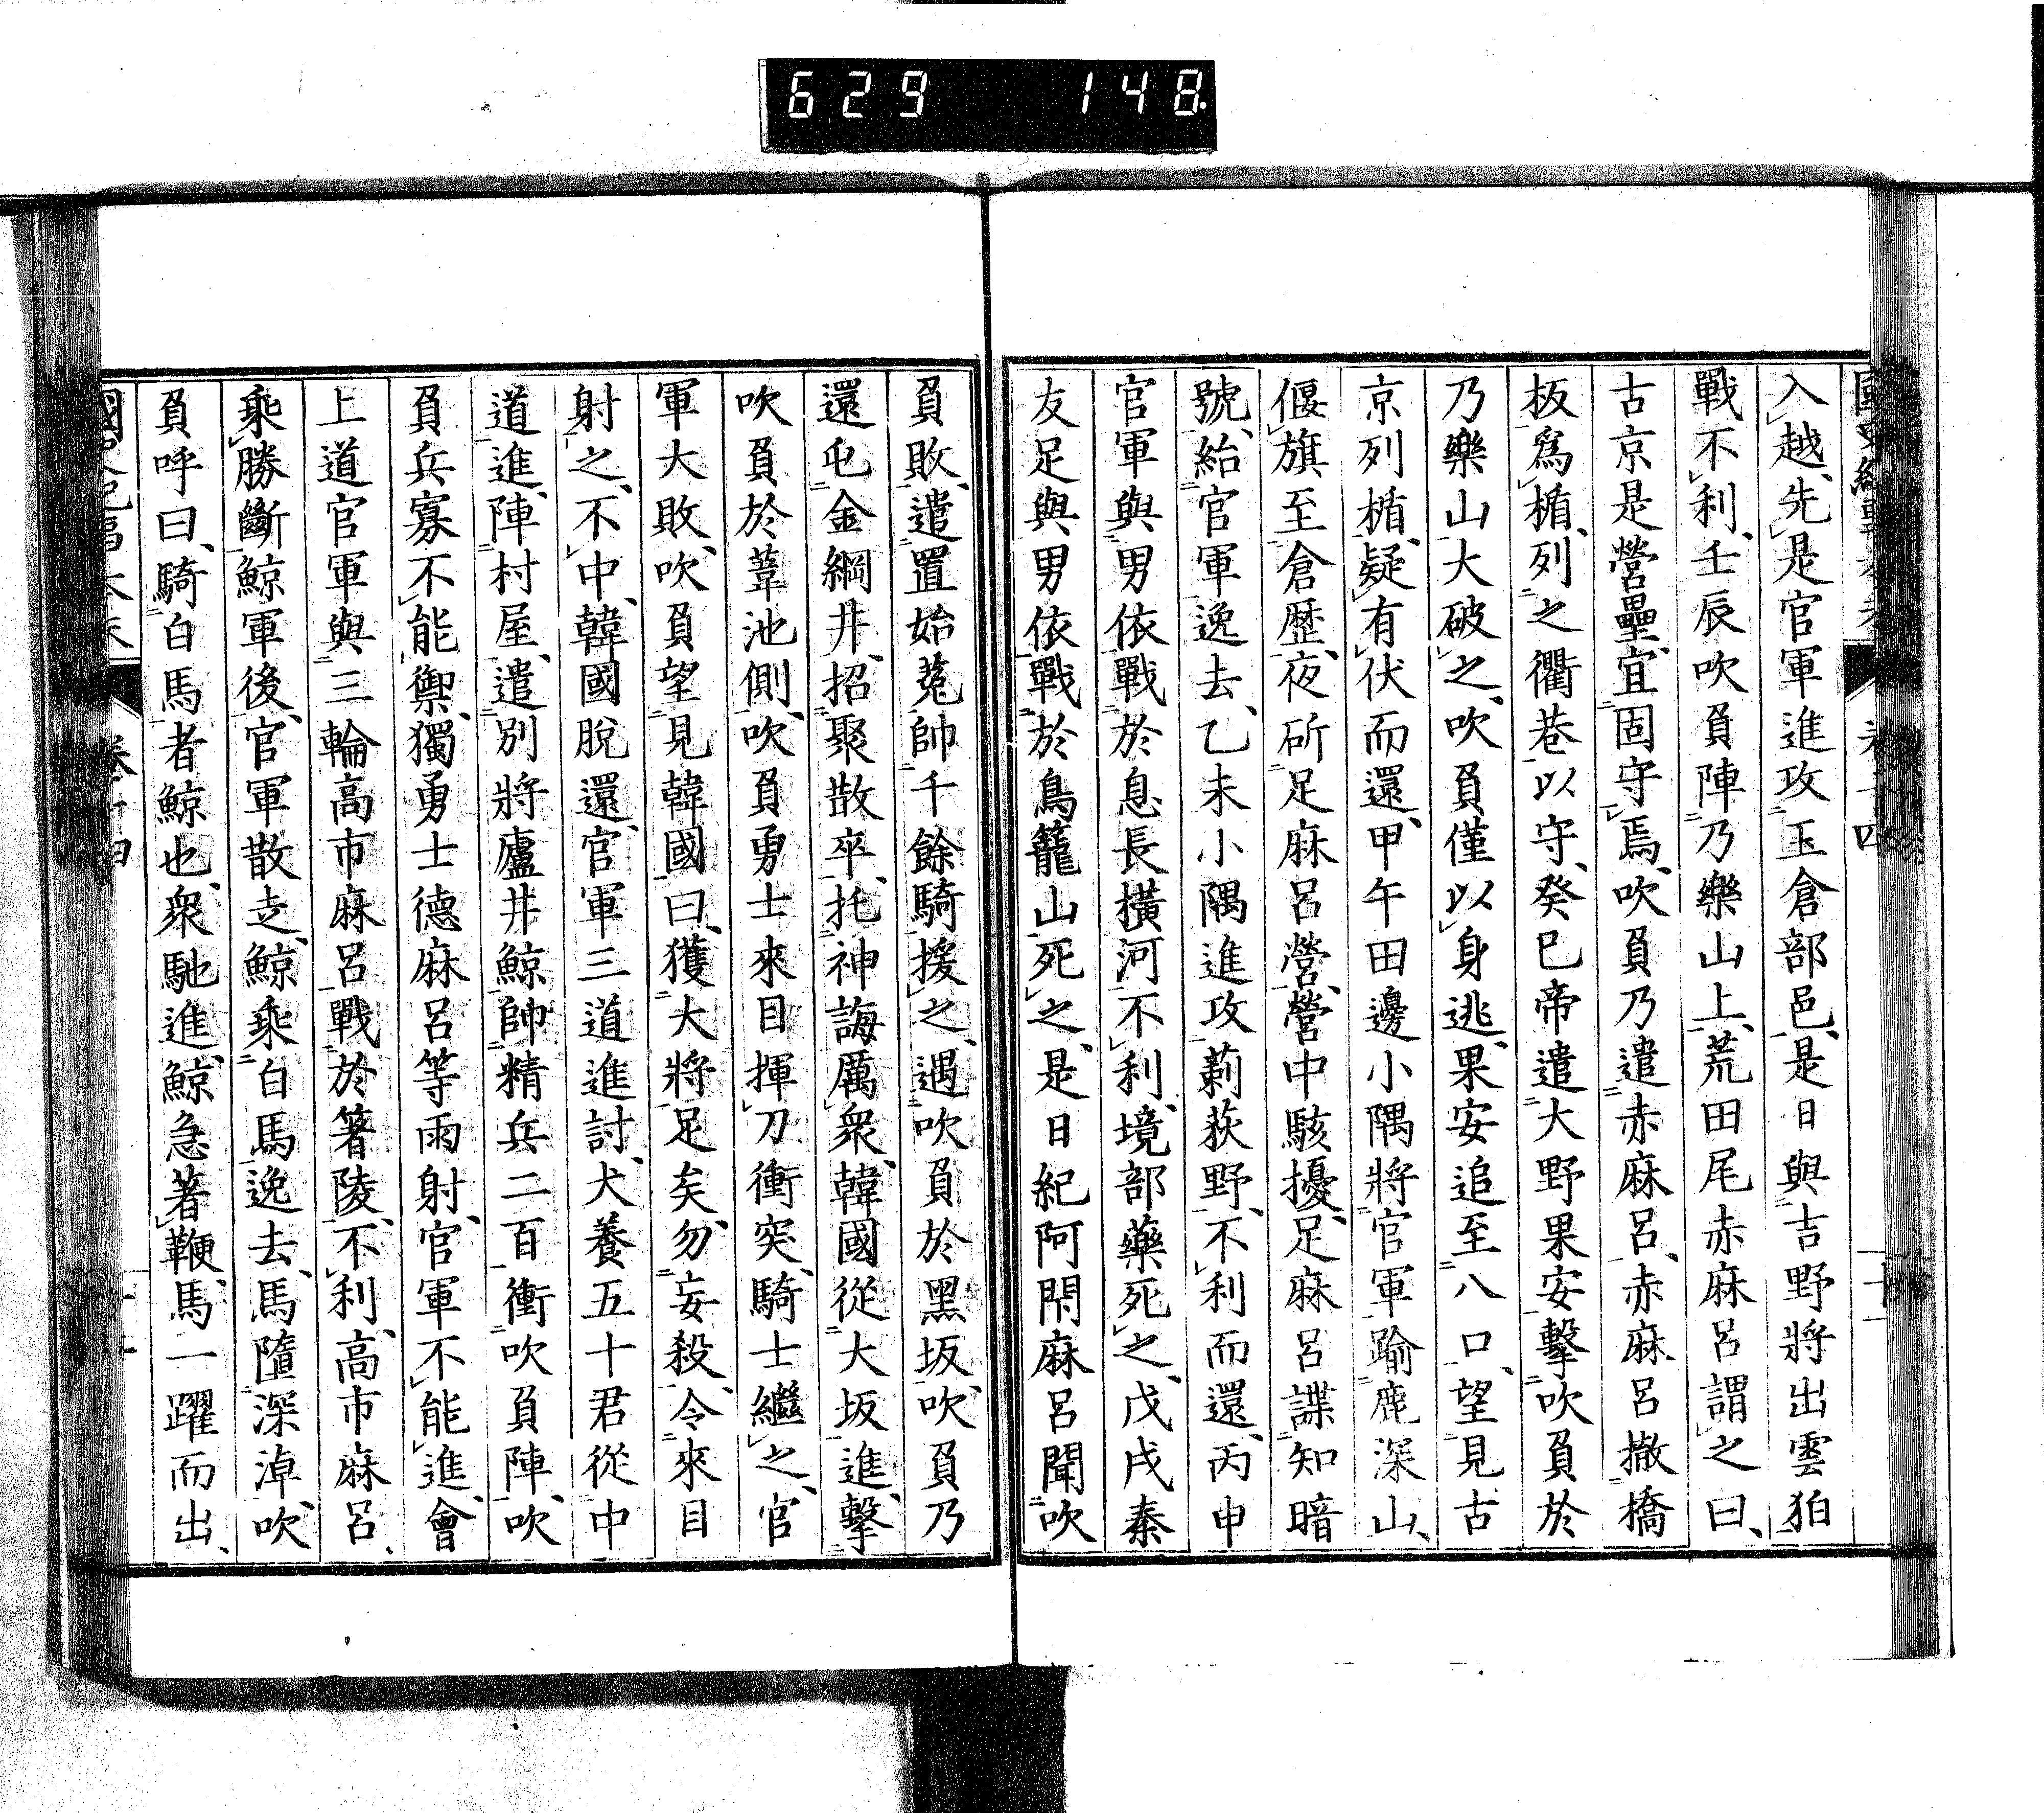 629 148
入越、先是官軍進攻玉倉部邑、是日與吉野將出雲狛
戰不利、壬辰吹負陣乃樂山上、荒田尾赤麻呂謂之曰、
古京是營壘、宜固守焉、吹負乃遣赤麻呂、赤麻呂撤橋
板爲楯、列之衢巷以守、癸巳帝遣大野果安擊吹負於
乃樂山大破之、吹負僅以身逃、果安追至八口、望見古
京列楯、疑有伏而還、甲午田邊小隅將官軍踰鹿深山、
偃旗至倉歷、夜斫足麻呂營、營中駭擾、足麻呂諜知暗
號、紿官軍逸去、乙未小隅進攻莿萩野、不利而還、丙申
官軍與男依戰於息長橫河不利、境部藥死之、戊戌秦
友足與男依戰於鳥籠山死之、是日紀阿閇麻呂聞吹
負敗、遣置始菟帥千餘騎援之、遇吹負於黑坂、吹負乃
還屯金綱井、招聚散卒、托神誨厲衆、韓國從大坂進擊
吹負於葦池側、吹負勇士來目揮刀衝突、騎士繼之、官
軍大敗、吹負望見韓國曰、獲大將足矣、勿妄殺、令來目
射之、不中、韓國脫還、官軍三道進討、犬養五十君從中
道進、陣村屋、遣別將廬井鯨帥精兵二百衝吹負陣、吹
負兵寡不能禦、獨勇士德麻呂等雨射、官軍不能進、會
上道官軍與三輪高市麻呂戰於箸陵、不利、高市麻呂、
乘勝斷鯨軍後、官軍散走、鯨乘白馬逸去、馬墮深淖、吹
負呼曰、騎白馬者鯨也、衆馳進、鯨急著鞭、馬一躍而出、